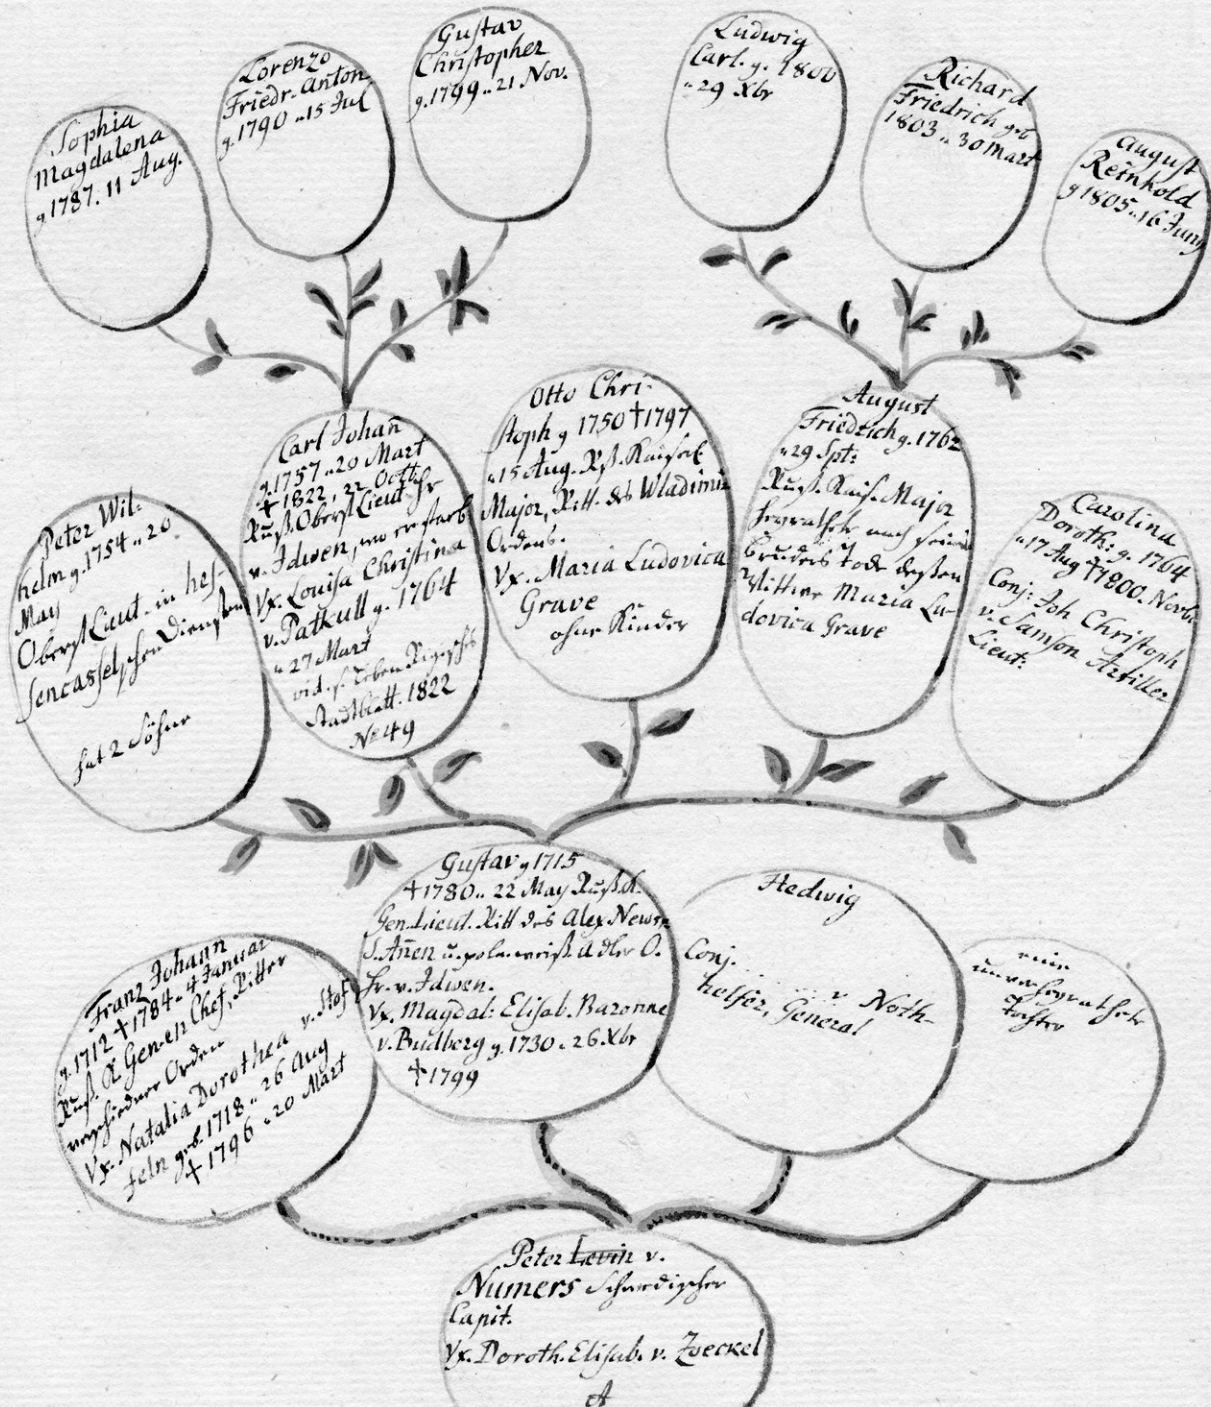 Sophia
Magdalena
g 1787. 11 Aug.
Lorenzo
Friedr. Anton
g. 1790 .. 15 Jul
Gustav
Christopher
g. 1799 .. 21 Nov.
Ludwig
Carl. g. 1800
.. 29 Xbr
Richard
Friedrich geb
1803 .. 30 Mart
August
Reinhold
g 1805 .. 16 Juny
Peter Wil-
helm g. 1754 .. 20
May
Oberst Lieut. in hes-
sencasselschen Diensten
hat 2 Söhne
Carl Johan̄
g. 1757 .. 20 Mart
† 1822, 22 Octbr
Ruß. Oberst Lieut. Hr
v. Idwen, wo er starb
Vx. Louisa Christina
v. Patkull g. 1764
.. 27 Mart
vid. s. Leben Rigasches
Stadtblatt. 1822
No 49
Otto Chri-
stoph g 1750 † 1797
.. 15 Aug. Rß. Kaiserl.
Major, Ritt. des Wladimir
Ordens.
Vx. Maria Ludovica
Grave
ohne Kinder
August
Friedrich g. 1762
.. 29 Spt:
Ruß. Kais. Major
heyrathete nach seines
Bruders Tode deßen
Wittwe Maria Lu-
dovica Grave
Carolina
Doroth: g. 1764
.. 17 Aug † 1800. Novb.
Conj: Joh Christoph
v. Samson Artiller
Lieut:
Franz Johann
g. 1712 † 1784 .. 4 Januar
Ruß. K. Gen-en Chef, Ritter
verschiedner Orden
Vx. Natalia Dorothea v. Stof
feln geb. 1718 .. 26 Aug
† 1796 .. 20 Mart
Gustav g 1715
† 1780 .. 22 May Ruß. K.
Gen. Lieut. Ritt des Alex Newsk.
S. An̄en u. poln. weiß. Adler O.
Hr. v. Idwen.
Vx. Magdal: Elisab. Baronne
v. Budberg g. 1730 .. 26. Xbr
† 1799
Hedwig
Conj. ..... v. Noth-
helfer, General
eine
unverheyrathete
Tochter
Peter Levin v.
Numers Schwedischer
Capit.
Vx. Doroth. Elisab. v. Zoeckel
A